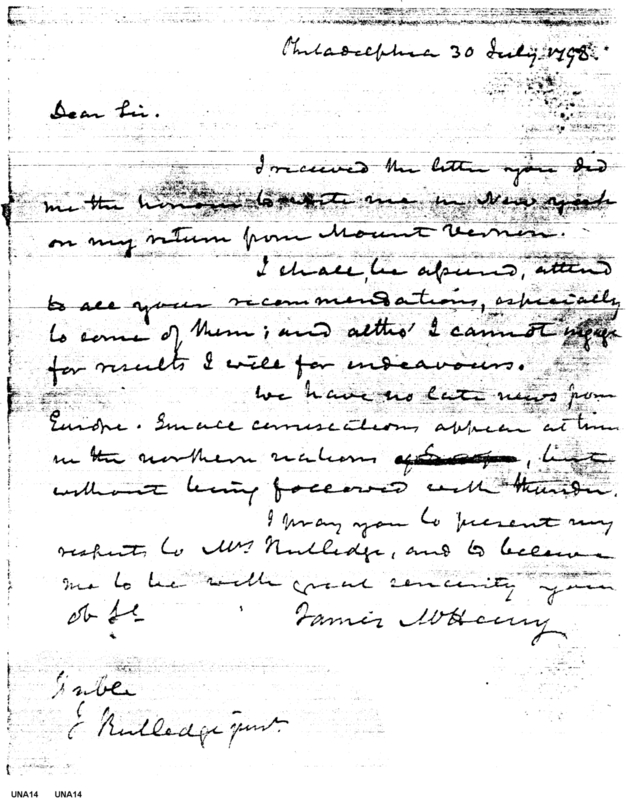 Philadelphia 30 July 1798.
Dear Sir.
I received the letter you did
me the honour to write me in New york
on my return from Mount Vernon.
I shall, be assured, attend
to all your recommendations, especially
to some of them; and altho' I cannot engage
for results I will for endeavours.
We have no late news from
Europe. Small coruscations appear at times
in the northern nations, but
without being followed with thunder.
I pray you to present my
respects to Mrs Rutledge, and to believe
me to be with great sincerity your
ob St
James McHenry
Honble
J Rutledge junr.
UNA14 UNA14